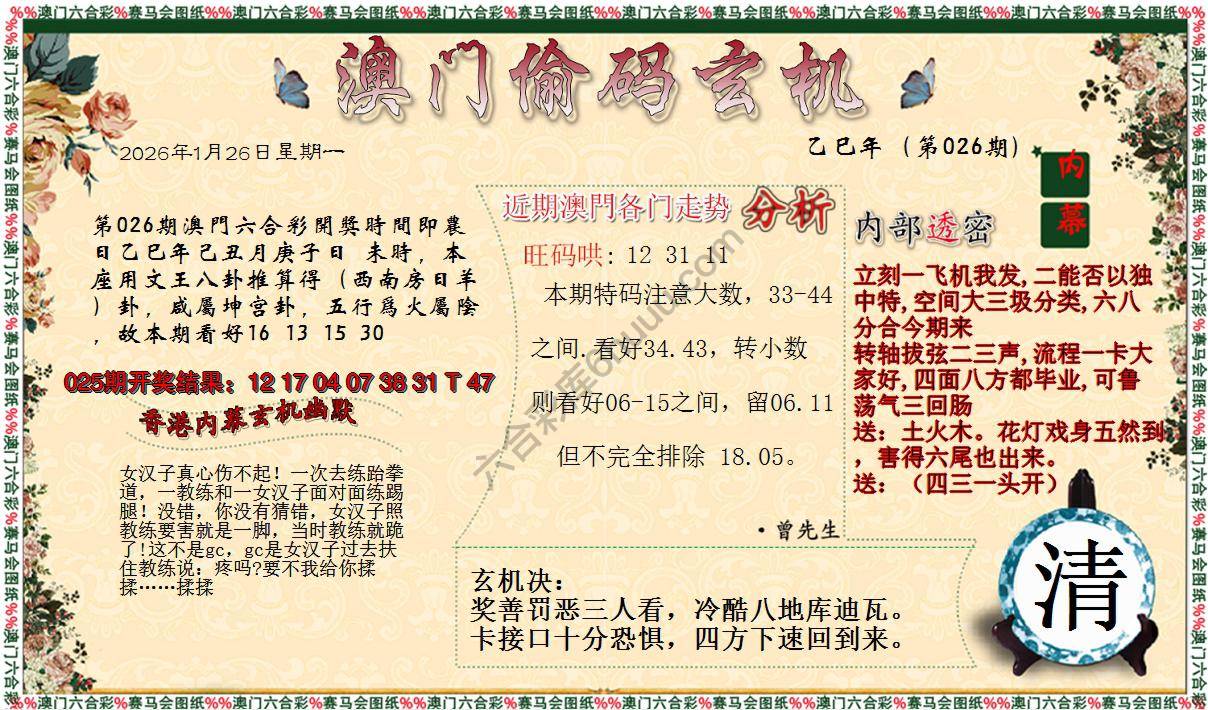 %%澳门六合彩%赛马会图纸%%澳门六合彩%赛马会图纸%%澳门六合彩%赛马会图纸%%澳门六合彩%赛马会图纸%%澳门六合彩%赛马会图纸%%澳门六合彩%赛马会图纸%%
澳门偷码玄机
2026年1月26日星期一
乙巳年（第026期）
内幕
第026期澳門六合彩開獎時間即農
日乙巳年己丑月庚子日 未時，本
座用文王八卦推算得（西南房日羊
）卦，咸屬坤宫卦，五行爲火屬陰
，故本期看好16 13 15 30
025期开奖结果：12 17 04 07 38 31 T 47
香港内幕玄机幽默
女汉子真心伤不起！一次去练跆拳
道，一教练和一女汉子面对面练踢
腿！没错，你没有猜错，女汉子照
教练要害就是一脚，当时教练就跪
了!这不是gc，gc是女汉子过去扶
住教练说：疼吗?要不我给你揉
揉……揉揉
近期澳門各门走势 分析
旺码哄: 12 31 11
本期特码注意大数，33-44
之间.看好34.43，转小数
则看好06-15之间，留06.11
但不完全排除 18.05。
·曾先生
内部透密
立刻一飞机我发,二能否以独
中特,空间大三圾分类,六八
分合今期来
转轴拔弦二三声,流程一卡大
家好,四面八方都毕业,可鲁
荡气三回肠
送：土火木。花灯戏身五然到
，害得六尾也出来。
送：（四三一头开）
玄机决：
奖善罚恶三人看，冷酷八地库迪瓦。
卡接口十分恐惧，四方下速回到来。
清
六合彩库
%%澳门六合彩%赛马会图纸%%澳门六合彩%赛马会图纸%%澳门六合彩%赛马会图纸%%澳门六合彩%赛马会图纸%%澳门六合彩%赛马会图纸%%澳门六合彩%赛马会图纸%%